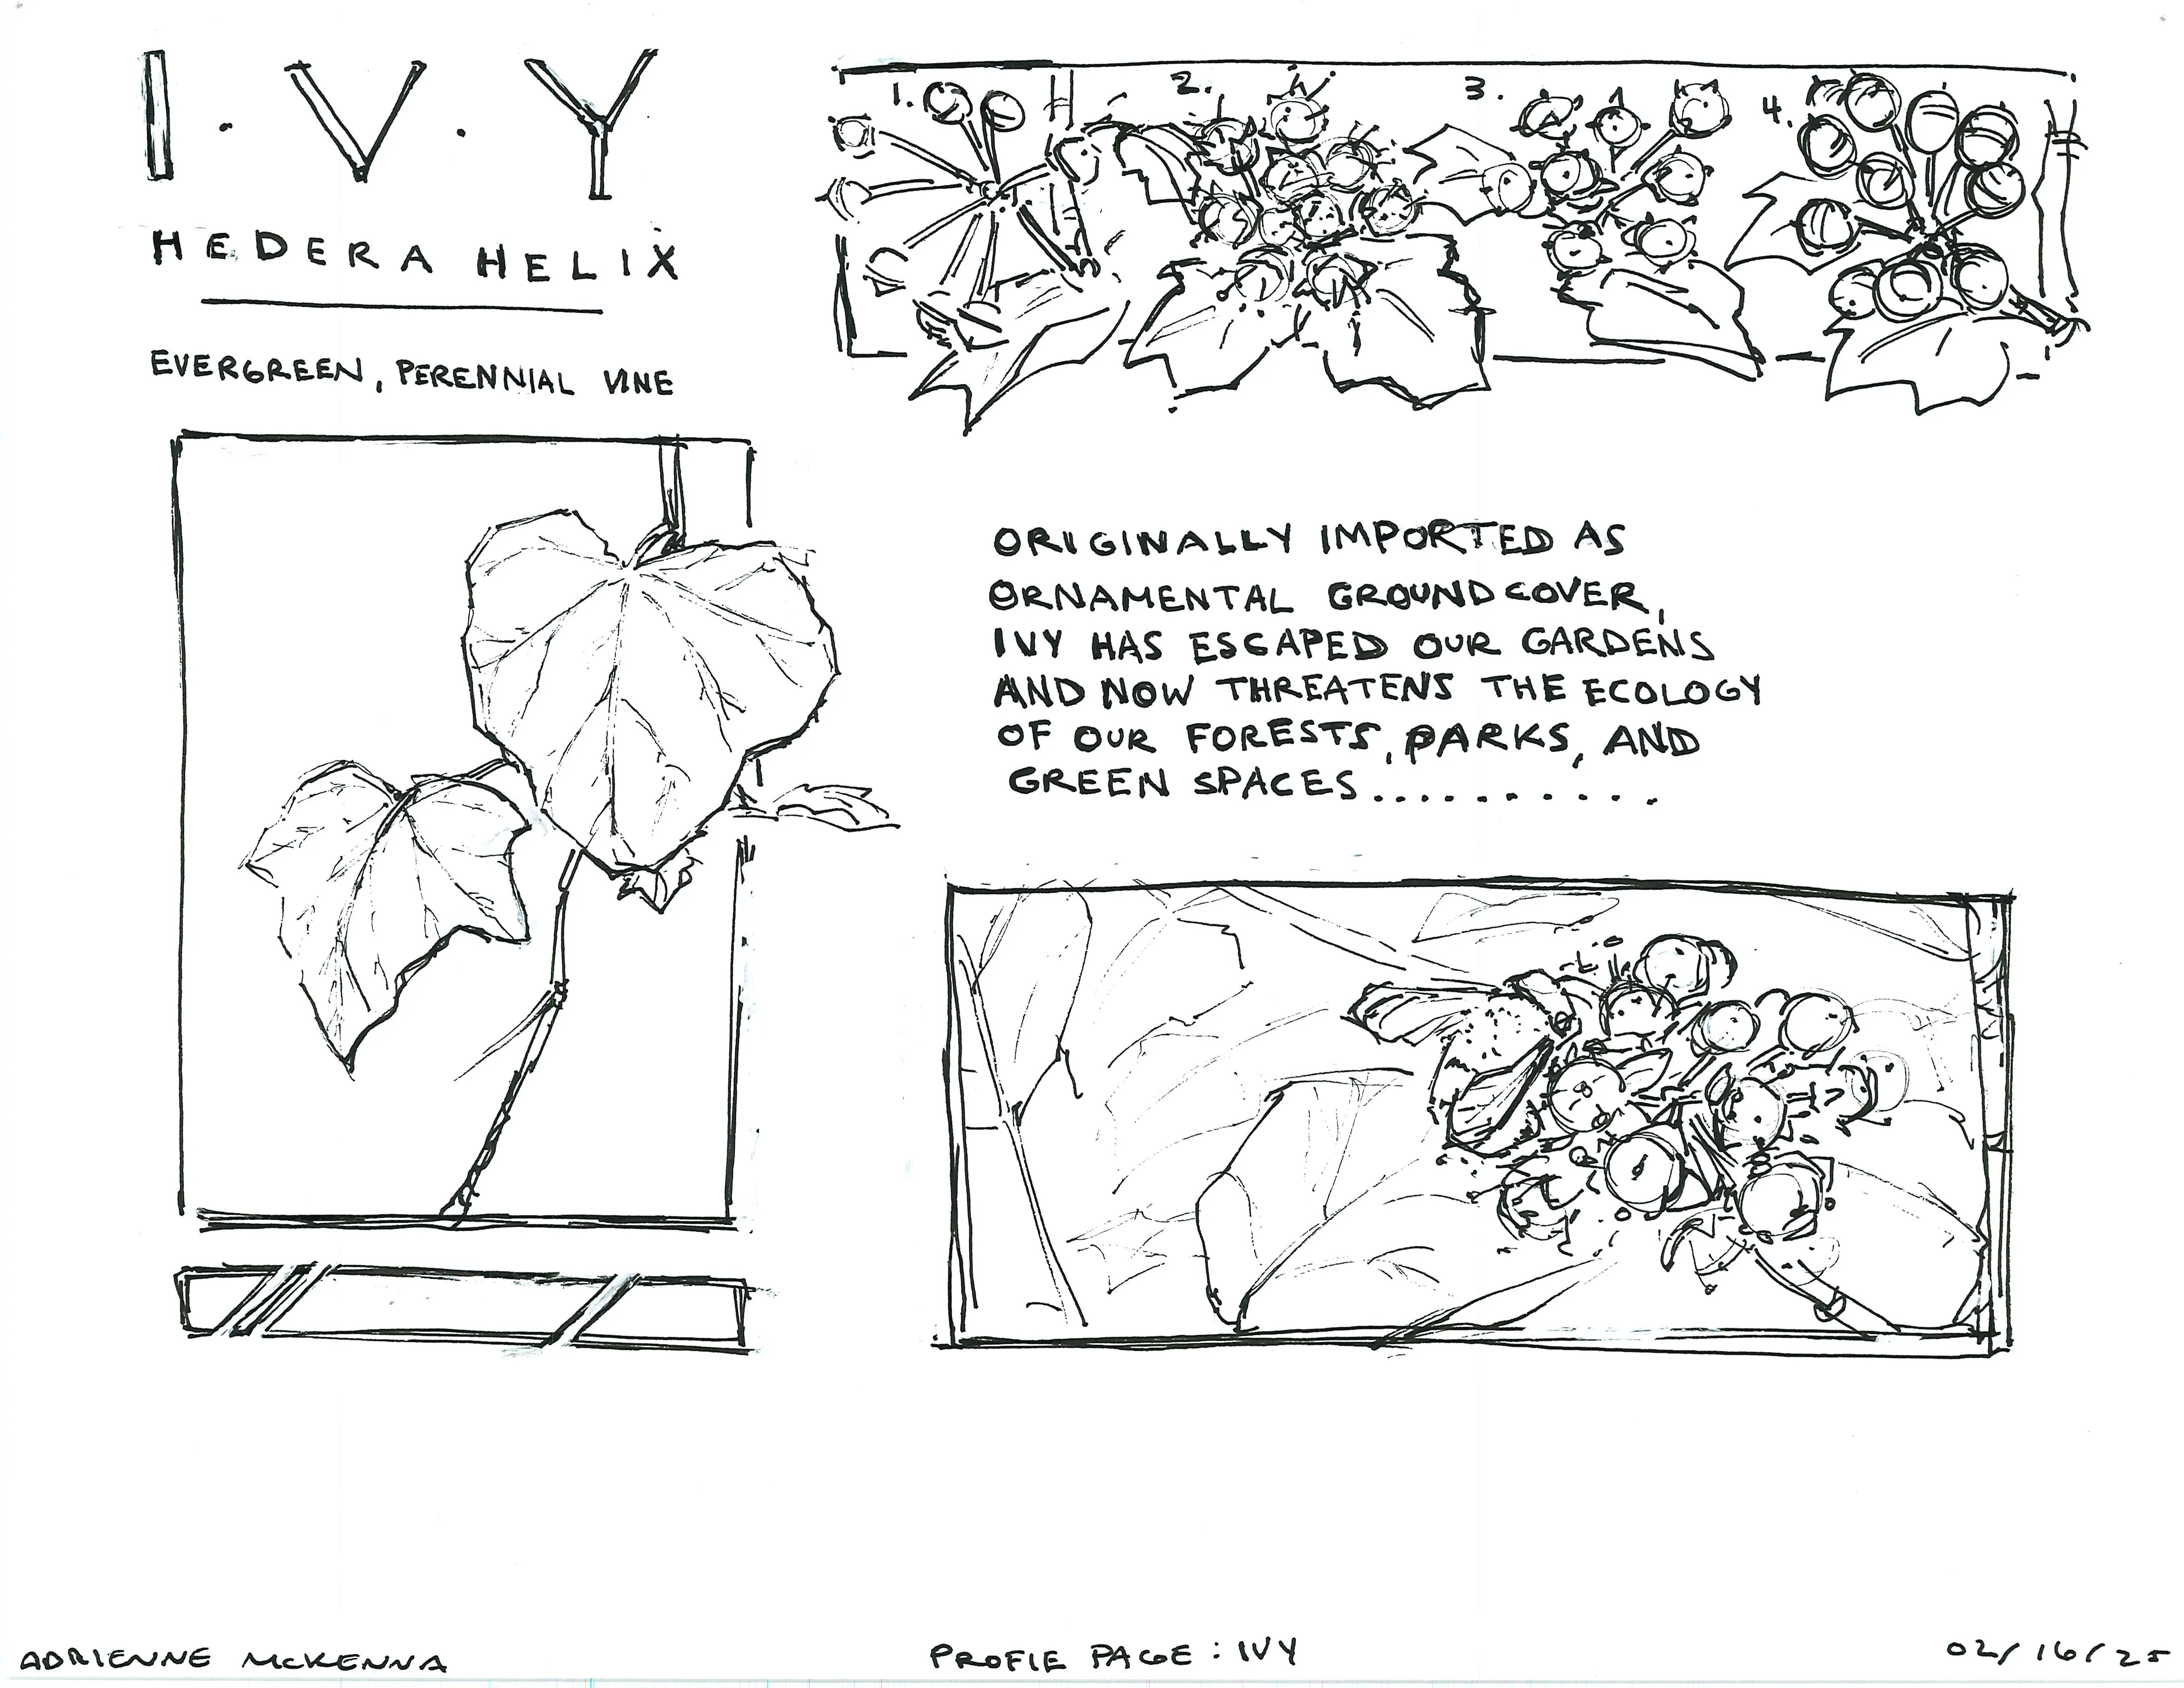 I . V . Y
HEDERA HELIX
EVERGREEN, PERENNIAL VINE
1. 2. 3. 4.
ORIGINALLY IMPORTED AS
ORNAMENTAL GROUNDCOVER,
IVY HAS ESCAPED OUR GARDENS
AND NOW THREATENS THE ECOLOGY
OF OUR FORESTS, PARKS, AND
GREEN SPACES..........
ADRIENNE MCKENNA
PROFIE PAGE : IVY
02/16/25